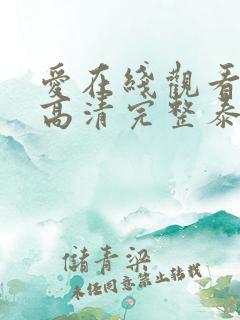 愛在綫觀看
高清完整泰
儲青梁
未經同意禁止轉載